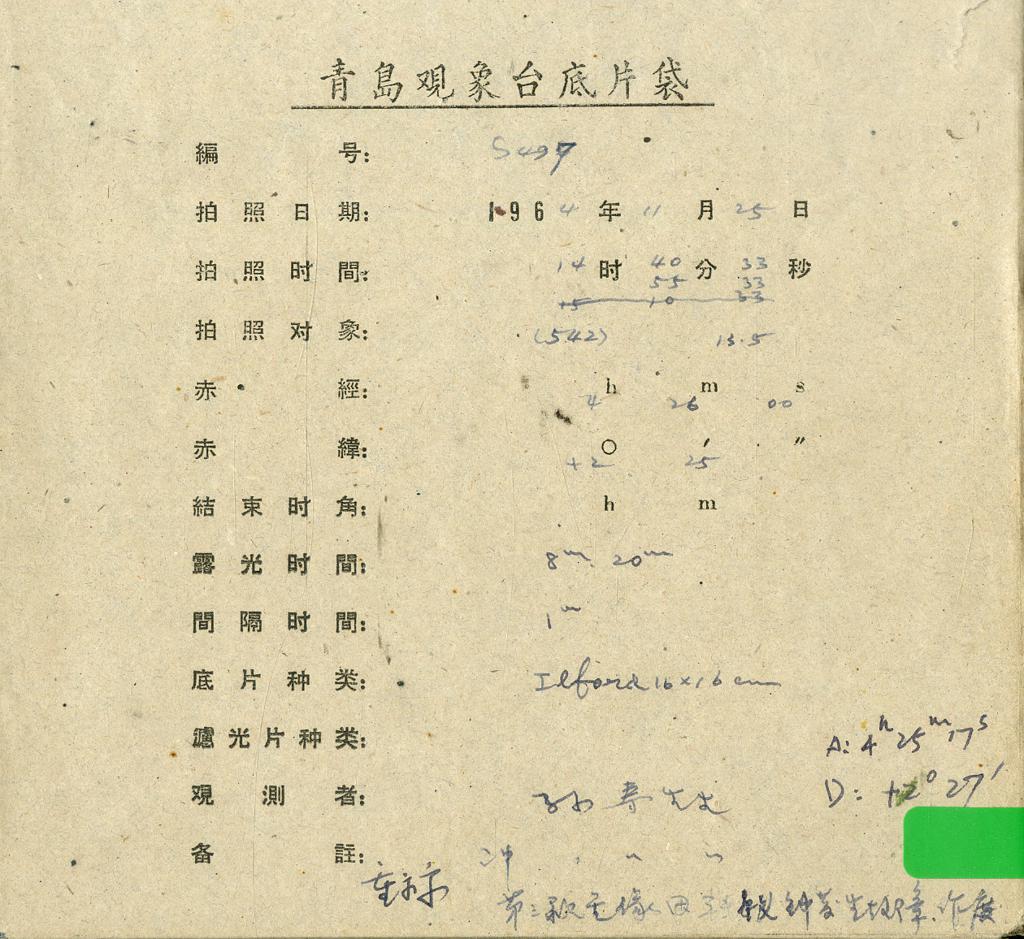 青島观象台底片袋
編 号： S497
拍照日期： 1964年11月25日
拍照时間： 14时40分33秒
55 33
15 10 33
拍照对象： (542) 13.5
赤 經： 4h 26m 00s
赤 緯： +2° 25′ ″
結束时角： h m
露光时間： 8m 20m
間隔时間： 1m
底片种类： Ilford 16×16cm
濾光片种类：
A: 4h 25m 17s
观 測 者： 孙寿
D: +2° 27′
备 註： 冲 〃 〃
第 像 钟发生故障，作废